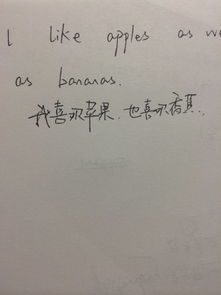 I like apples as we
as bananas.
我喜欢苹果.也喜欢香蕉.